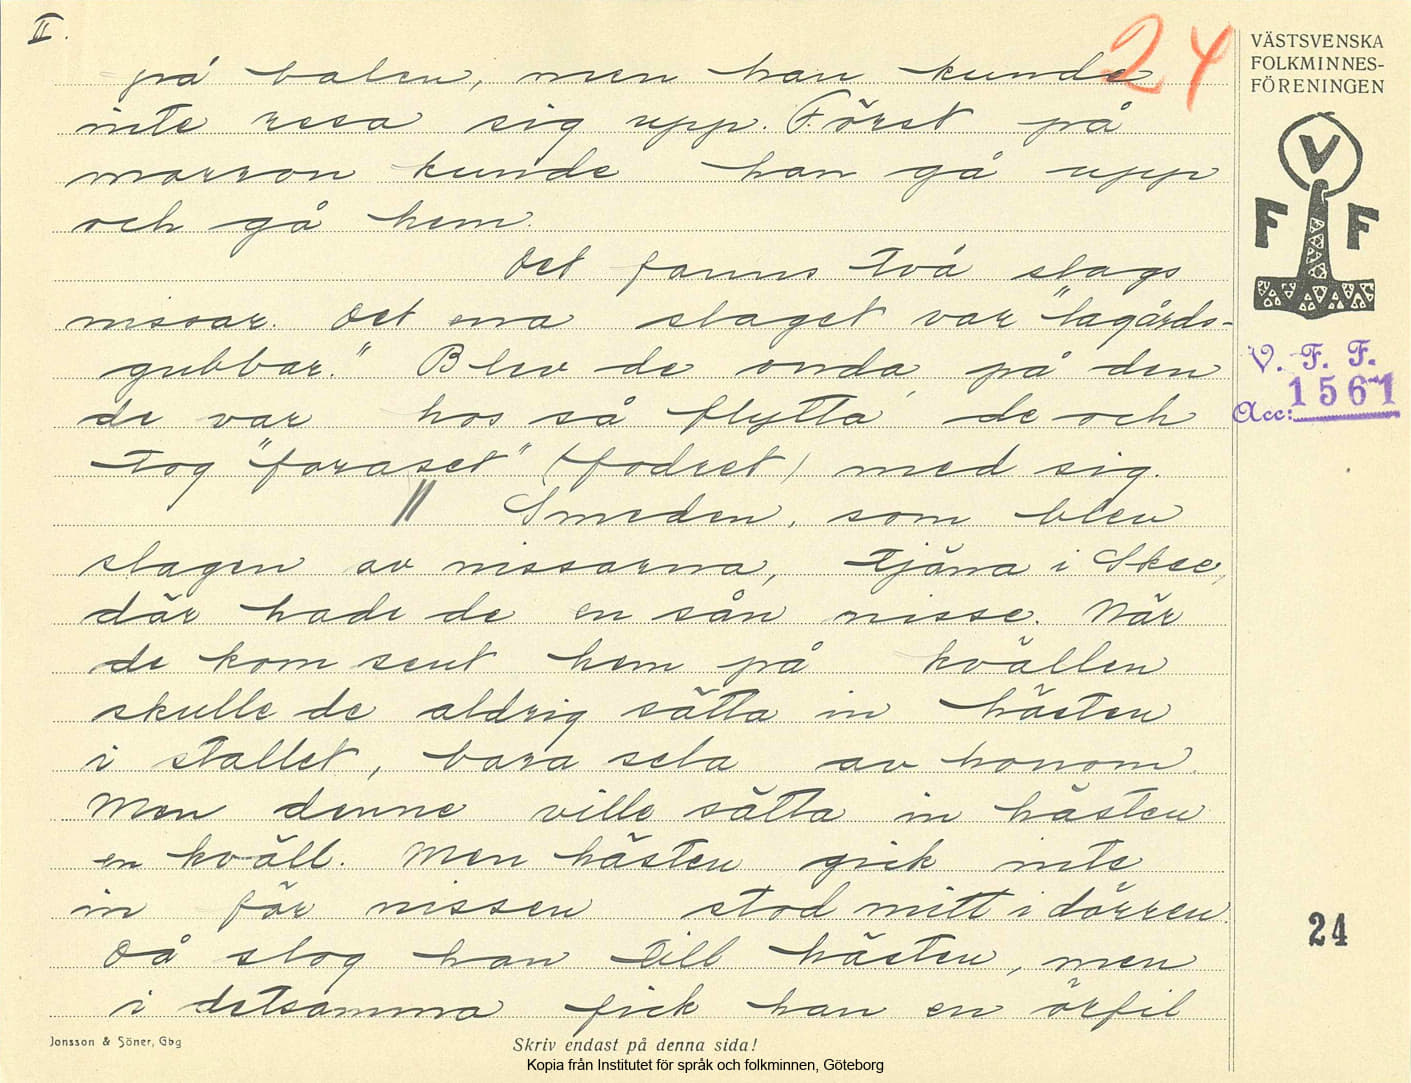 II.
24
på balen, men han kunde
inte resa sig upp. Först på
morron kunde han gå upp
och gå hem.
Det fanns två slags
nissar. Det ena slaget var "lagårds-
gubbar." Blev de onda på den
de var hos så flytta' de och
tog "foraset" (fodret) med sig.
// Smeden, som blev
slagen av nissarna, tjäna i Skee,
där hade de en sån nisse. När
de kom sent hem på kvällen
skulle de aldrig sätta in hästen
i stallet, bara sela av honom.
Men denne ville sätta in hästen
en kväll. Men hästen gick inte
in för nissen stod mitt i dörren.
Då slog han till hästen, men
i detsamma fick han en örfil
Jonsson & Söner, Gbg
Skriv endast på denna sida!
Kopia från Institutet för språk och folkminnen, Göteborg
VÄSTSVENSKA
FOLKMINNES-
FÖRENINGEN
V
F F
V. F. F.
Acc: 1561
24